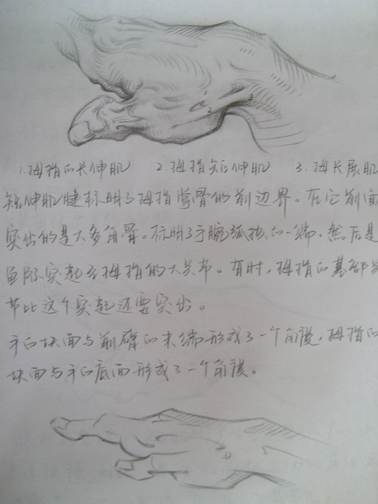 1.拇指的长伸肌 2.拇指短伸肌 3.拇长展肌
短伸肌腱标明了拇指掌骨的前边界。在它前面
突出的是大多角骨。标明了手腕弧拱的一端。然后是
实起了拇指的大关节。有时,拇指的基部关
节比这个突起还要突出。
手的块面与前臂的末端形成了一个角度,拇指的
块面与手的底面形成了一个角度。